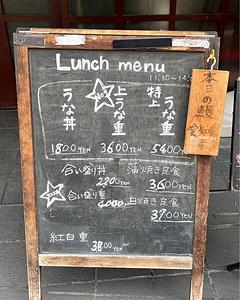 Lunch menu
11:30~14:00
うな丼
1800YEN
上うな重
3600YEN
特上うな重
5400YEN
合い盛り丼
2200YEN
合い盛り重
4000YEN
紅白重
3800YEN
蒲焼き定食
3600YEN
白焼き定食
3700YEN
本日の鰻
愛知県